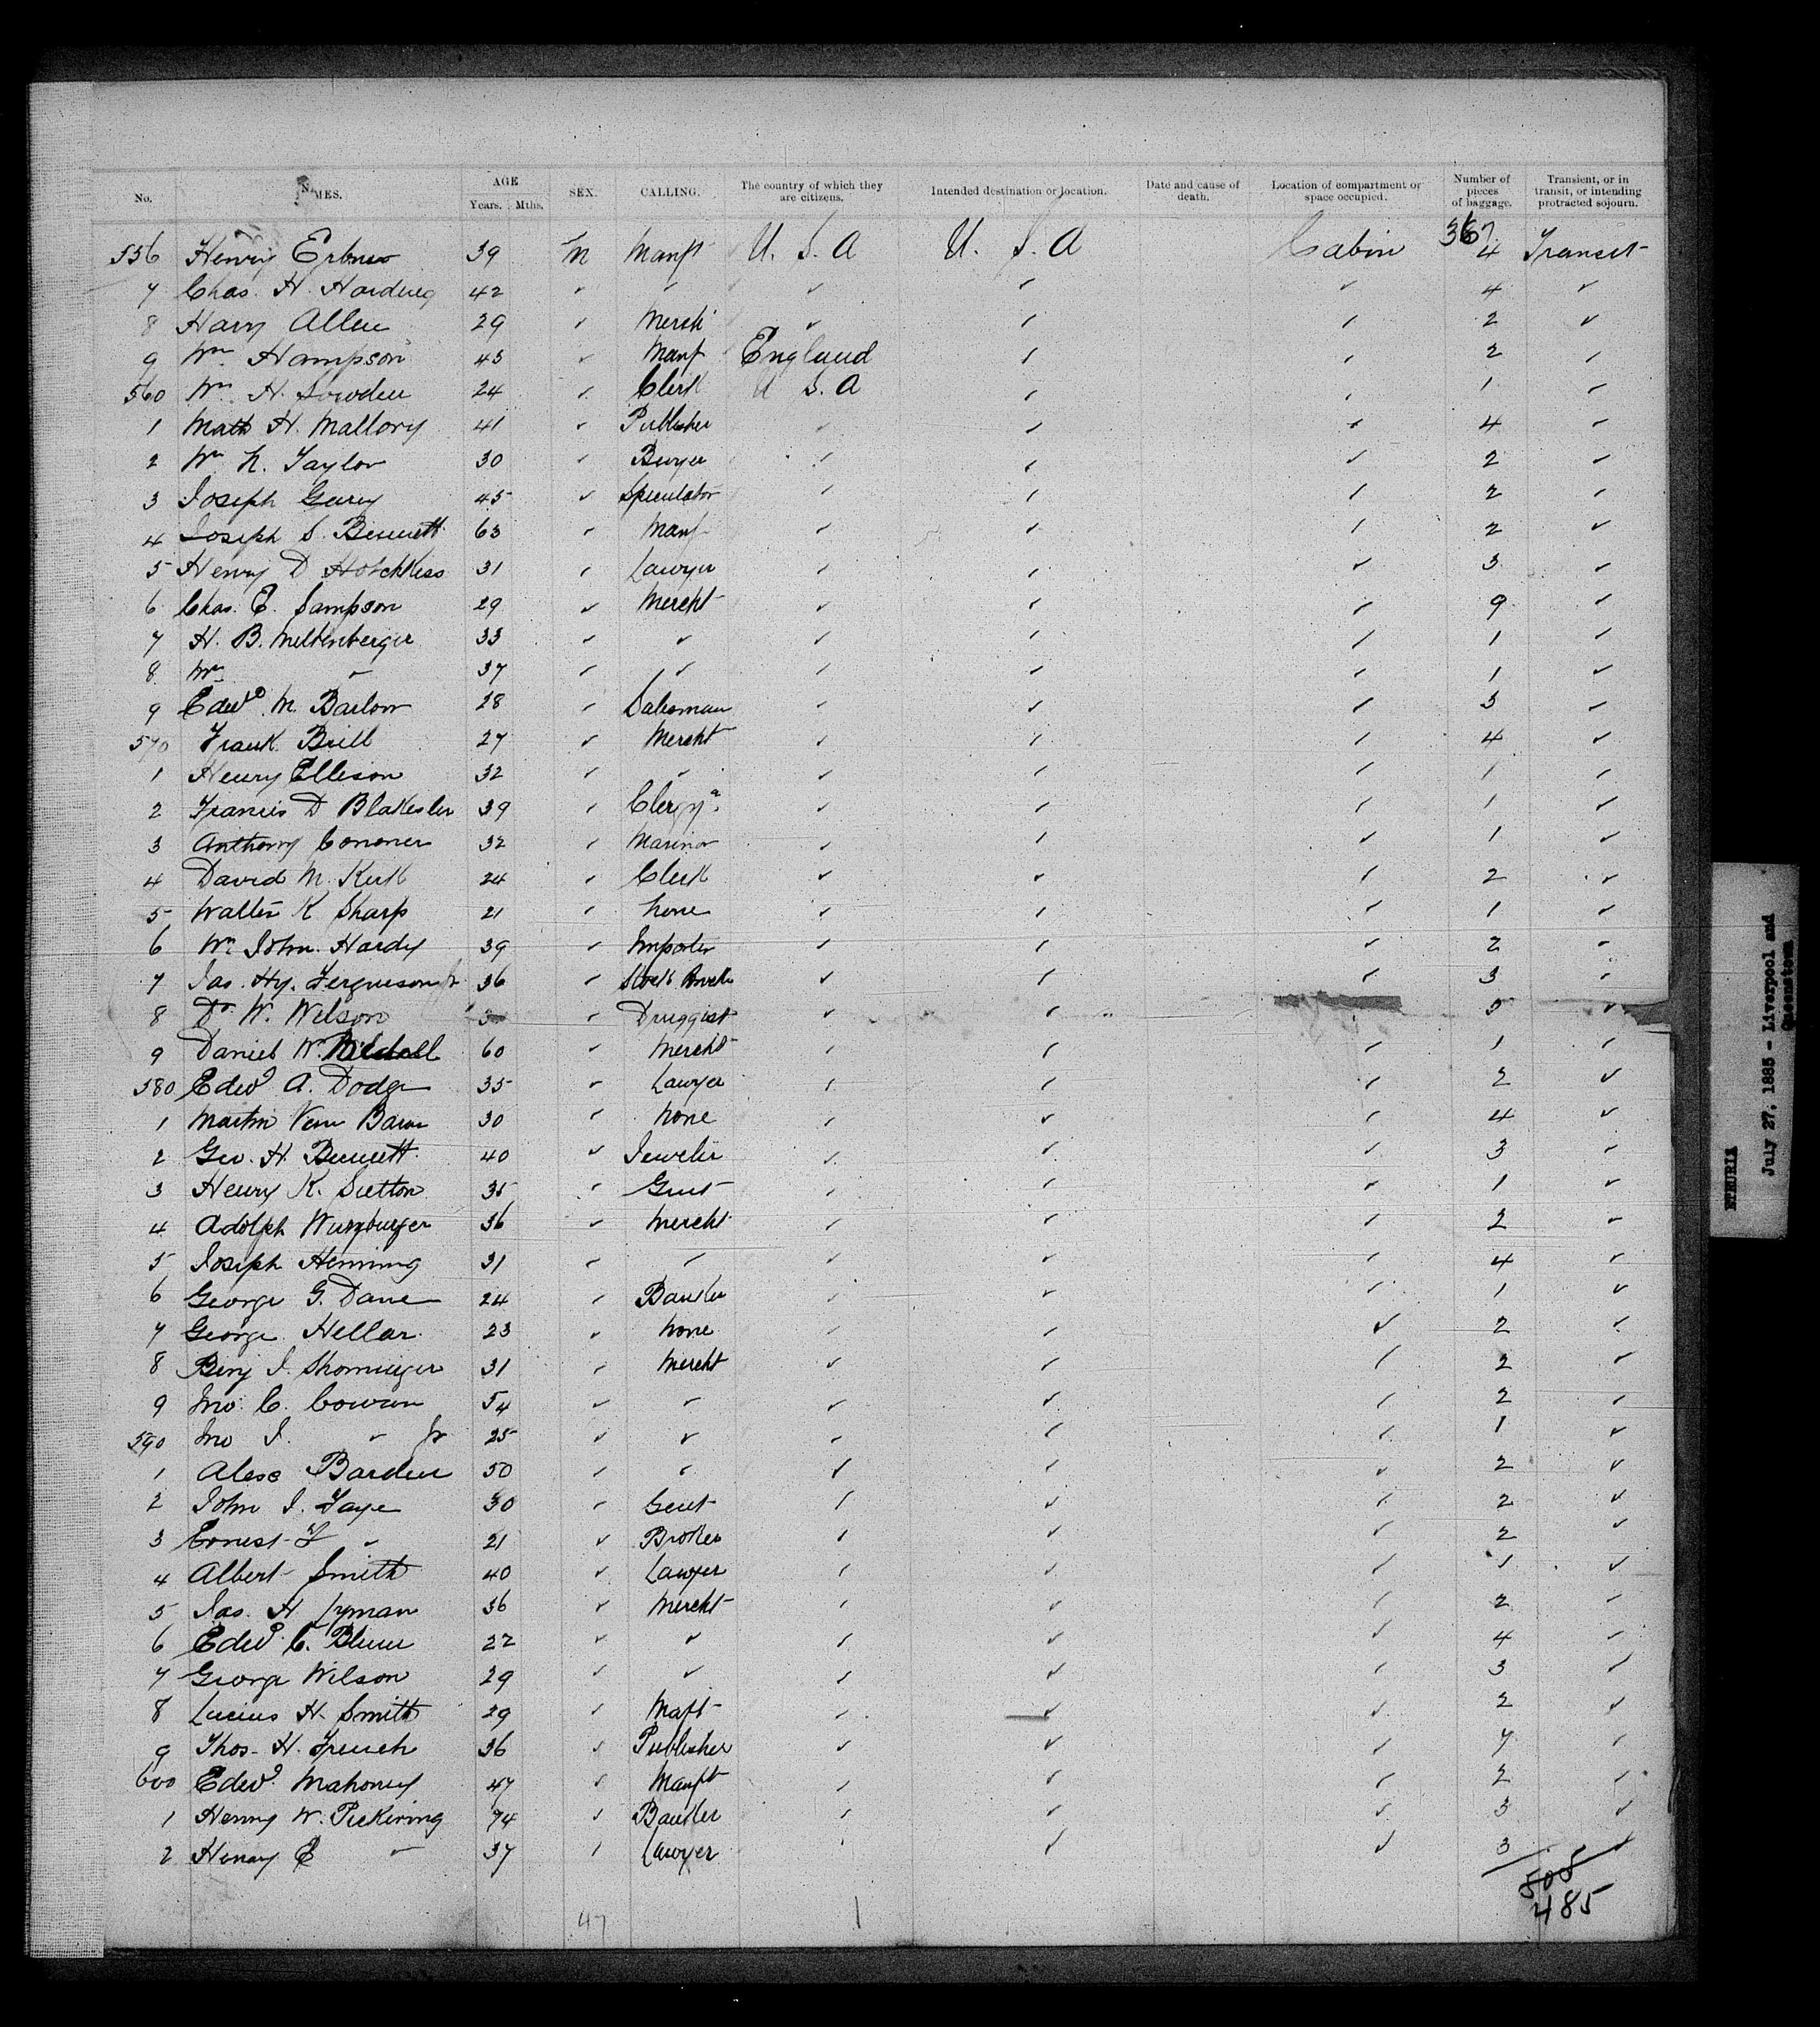 No. NAMES. AGE Years. Mths. SEX. CALLING. The country of which they are citizens. Intended destination or location. Date and cause of death. Location of compartment or space occupied. Number of pieces of baggage. Transient, or in transit, or intending protracted sojourn.
367
556 Henry 39 M Manft U. S. A U. S. A Cabin 4 Transit
7 Chas. H. Harding 42 ✓ ✓ ✓ ✓ ✓ 4 ✓
8 Harry Allen 29 ✓ Mercht ✓ ✓ ✓ 2 ✓
9 Wm Hampson 43 ✓ Manf England ✓ ✓ 2 ✓
560 Wm H. Sowden 24 ✓ Clerk U S. A ✓ ✓ 1 ✓
1 H. Mallory 41 ✓ Publisher ✓ ✓ ✓ 4 ✓
2 Wm N. Taylor 30 ✓ Buyer ✓ ✓ ✓ 2 ✓
3 Joseph Garey 45 ✓ Speculator ✓ ✓ ✓ 2 ✓
4 Joseph S. Bennett 63 ✓ Manf ✓ ✓ ✓ 2 ✓
5 Henry D Hotchkiss 31 ✓ Lawyer ✓ ✓ ✓ 3 ✓
6 Chas. E. Sampson 29 ✓ Mercht ✓ ✓ ✓ 9 ✓
7 H. B. Miltenberger 33 ✓ ✓ ✓ ✓ ✓ 1 ✓
8 ✓ 37 ✓ ✓ ✓ ✓ ✓ 1 ✓
9 Edwd M. Barlow 28 ✓ Salesman ✓ ✓ ✓ 3 ✓
570 Frank Brill 27 ✓ Mercht ✓ ✓ ✓ 4 ✓
1 Henry Ellison 32 ✓ ✓ ✓ ✓ ✓ 1 ✓
2 Francis D Blakeslee 39 ✓ Clergyn ✓ ✓ ✓ 1 ✓
3 Anthony Cononer 32 ✓ Marinor ✓ ✓ ✓ 1 ✓
4 David M. Kirk 24 ✓ Clerk ✓ ✓ ✓ 2 ✓
5 Walter K Sharp 21 ✓ None ✓ ✓ ✓ 1 ✓
6 Wm John Hardy 39 ✓ Importer ✓ ✓ ✓ 2 ✓
7 Jas. Hy. Ferguson Jr 36 ✓ Stock Broker ✓ ✓ ✓ 3 ✓
8 Dr W. Wilson ✓ Druggist ✓ ✓ 3 ✓
9 Daniel W. 60 ✓ Mercht ✓ ✓ ✓ 1 ✓
580 Edwd A. Dodge 35 ✓ Lawyer ✓ ✓ ✓ 2 ✓
1 Martin 30 ✓ None ✓ ✓ ✓ 4 ✓
2 Geo. H. Bennett 40 ✓ Jeweler ✓ ✓ ✓ 3 ✓
3 Henry K. Sutton 35 ✓ Gent ✓ ✓ ✓ 1 ✓
4 Adolph Wurzburger 36 ✓ Mercht ✓ ✓ ✓ 2 ✓
5 Joseph Henning 31 ✓ ✓ ✓ ✓ ✓ 4 ✓
6 George G. Dane 24 ✓ Banker ✓ ✓ ✓ 1 ✓
7 George Hellar 23 ✓ None ✓ ✓ ✓ 2 ✓
8 Benj J. Shoninger 31 ✓ Mercht ✓ ✓ ✓ 2 ✓
9 Jno. C. Cowan 54 ✓ ✓ ✓ ✓ ✓ 2 ✓
590 Jno J. ✓ Jr 25 ✓ ✓ ✓ ✓ ✓ 1 ✓
1 Alex Barden 50 ✓ ✓ ✓ ✓ ✓ 2 ✓
2 John J. Faye 30 ✓ Gent ✓ ✓ ✓ 2 ✓
3 Ernest F ✓ 21 ✓ Broker ✓ ✓ ✓ 2 ✓
4 Albert Smith 40 ✓ Lawyer ✓ ✓ ✓ 1 ✓
5 Jas. H Lyman 36 ✓ Mercht ✓ ✓ ✓ 2 ✓
6 Edwd C. Blum 22 ✓ ✓ ✓ ✓ ✓ 4 ✓
7 George Wilson 29 ✓ ✓ ✓ ✓ ✓ 3 ✓
8 Lucius H. Smith 29 ✓ Maft ✓ ✓ ✓ 2 ✓
9 Thos. H. French 36 ✓ Publisher ✓ ✓ ✓ 7 ✓
600 Edwd Mahoney 47 ✓ Manft ✓ ✓ ✓ 2 ✓
1 Henry W. Pickering 74 ✓ Banker ✓ ✓ ✓ 3 ✓
2 Henry E ✓ 37 ✓ Lawyer ✓ ✓ ✓ 3 ✓
508
485
47 1
ETRURIA
July 27, 1885 - Liverpool and
Queenstown